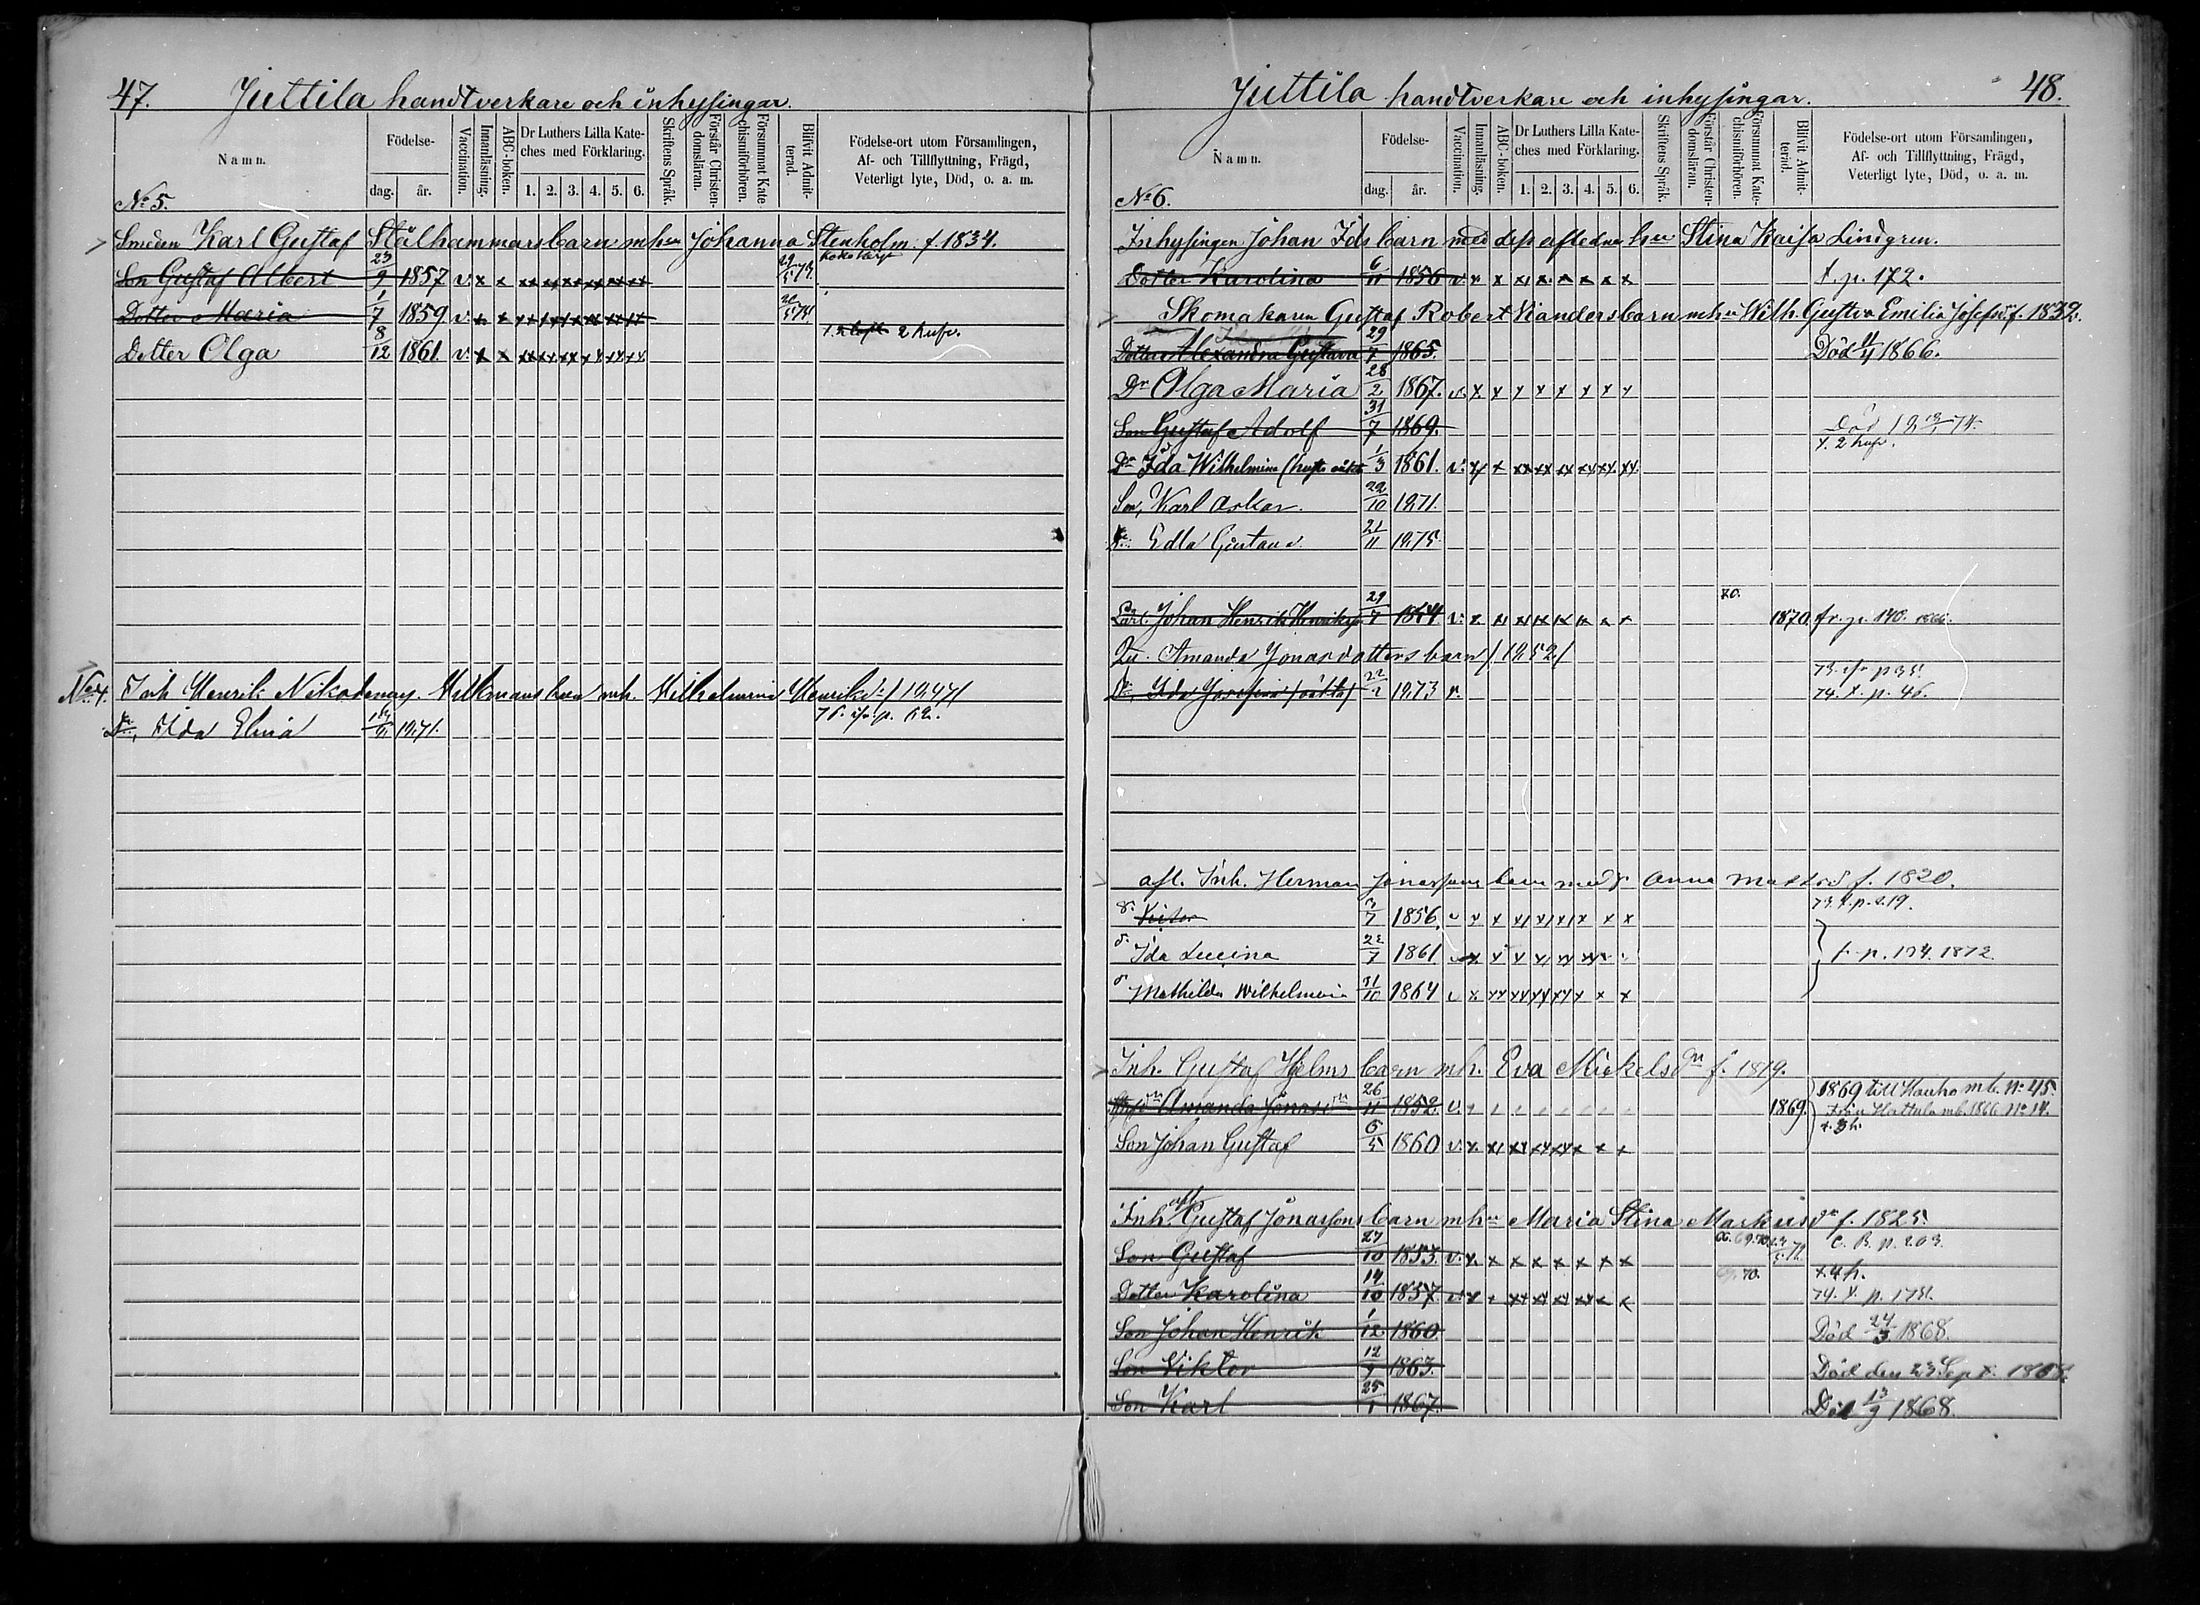 47. Juttila handtverkare och inhysingar.
Namn. Födelse- dag. år. Vaccination. Innanläsning. ABC-boken. Dr Luthers Lilla Kateches med Förklaring. 1. 2. 3. 4. 5. 6. Skriftens Språk. Förstår Christendomsläran. Försummat Katechismiförhören. Blifvit Admitterad. Födelse-ort utom Församlingen, Af- och Tillflyttning, Frägd, Veterligt lyte, Död, o. a. m.
No 5.
Smeden Karl Gustaf Stålhammars barn m hu Johanna Stenholm f. 1834.
Son Gustaf Albert 23/9 1857 v. x x xx xx xx xx xx xx 29/5 73.
Dotter Maria 1/7 1859 v. x x
Dotter Olga 8/12 1861 v. x x xx xx xx xx xx xx 2 hufv.
No 4. Inh Henrik Nikodemus Hellmans barn mh. Wilhelmina Henriksd. / 1847/
Dr, Ida Elina 1871. 76. ifr. p. 62.
48. Juttila handtverkare och inhysingar.
Namn. Födelse- dag. år. Vaccination. Innanläsning. ABC-boken. Dr Luthers Lilla Kateches med Förklaring. 1. 2. 3. 4. 5. 6. Skriftens Språk. Förstår Christendomsläran. Försummat Katechismiförhören. Blifvit Admitterad. Födelse-ort utom Församlingen, Af- och Tillflyttning, Frägd, Veterligt lyte, Död, o. a. m.
No 6.
Inhysingen Johan Ids barn med dess afledna hu Stina Kaisa Lindgren.
Dotter Karolina 6/11 1856 v. x x xx x. x x x x t. p. 172.
Skomakaren Gustaf Robert Kanders barn m hu Wilh. Gustva Emilia Josefsd. f. 1832.
Dotter Alexandra Gustava 29/7 1865. Död 1866.
Dr Olga Maria 28/2 1867. v. x x x x x x x x
Son Gustaf Adolf 31/7 1869. Död
t. 2 hufv.
Dr Ida Wilhelmina 1/3 1861. v. x x xx xx xx xx xx xx
Son, Karl Oskar 22/10 1871.
Dr. Edla Gustava 21/11 1875
70.
Johan Henrik Henriksson 29/7 1854 v. x x xx xx x x x x 1870 fr. p. 140.
Qu. Amanda Jonasdotters barn / 1852/
73. ifr p 35.
Dr. Ida Josefina /oäkta/ 1873 v. 74. t. p. 46.
afl. Inh. Herman Jonassons barn med Anna Mattsd f. 1820.
73. t. p. 219.
S. Victor 3/7 1856. v x x x x x x x x
d. Ida Lucina 22/7 1861. t. p. 174. 1872.
d Mathilda Wilhelmina 31/10 1864 v x xx xx xx xx x x x
Inh. Gustaf Hjelms barn mh. Eva Mickelsdr f. 1819.
Amanda Jonasdr 26/11 1852. v. 1869. 1869 till Hauho mb. No 45.
från Hattula mb. 1866 No 14.
Son Johan Gustaf 6/5 1860 v. x. x xx xx xx x x x
Inh. afl Gustaf Jonassons barn m hu Maria Stina Markusdr f. 1825.
Son Gustaf 27/10 1853. v. x. x x x x x x x C. B. p. 203.
70. t. 4 h.
Dotter Karolina 14/10 1857. v. x 74. t. p. 174.
Son Johan Henrik 1/12 1860. Död 24/3 1868.
Son Viktor 12/9 1863. Död den 23 Sept. 1868.
Son Karl 25/1 1867. Död 13/9 1868.